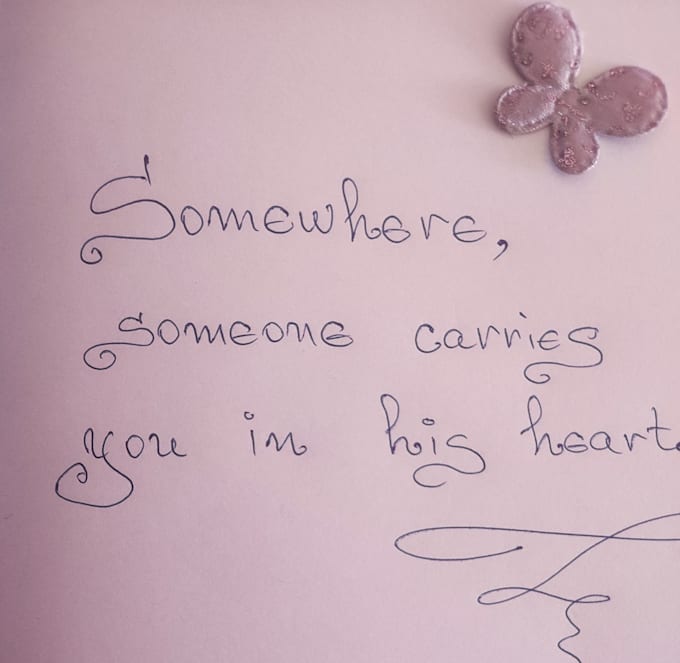 Somewhere,
someone carries
you in his heart.